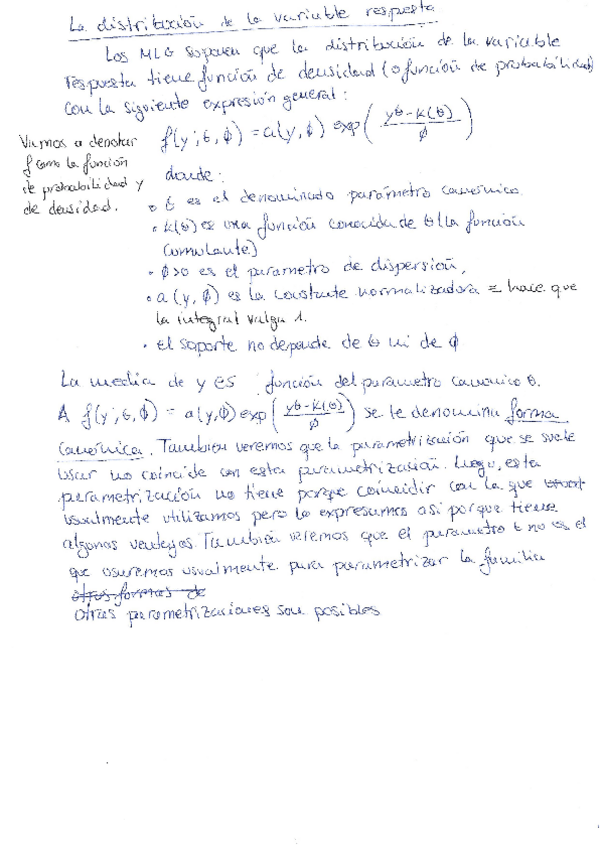 La distribución de la variable respuesta
Los MLG suponen que la distribución de la variable
respuesta tiene función de densidad (o función de probabilidad)
con la siguiente expresión general:
Vamos a denotar
f como la función
de probabilidad y
de densidad.
f(y;θ,ϕ) = a(y,ϕ) exp( (yθ-k(θ))/ϕ )
donde:
• θ es el denominado parámetro canónico.
• k(θ) es una función conocida de θ (la función
cumulante)
• ϕ>0 es el parametro de dispersión,
• a(y,ϕ) es la constante normalizadora ≡ hace que
la integral valga 1.
• El soporte no depende de θ ni de ϕ
La media de y es función del parametro canonico θ.
A f(y;θ,ϕ) = a(y,ϕ) exp( (yθ-k(θ))/ϕ ) se le denomina forma
canónica. También veremos que la parametrización que se suele
usar no coincide con esta parametrización. Luego, esta
parametrización no tiene porque coincidir con la que
usualmente utilizamos pero la expresamos así porque tiene
algunas ventajas. También veremos que el parametro θ no es el
que usaremos usualmente para parametrizar la familia
otras formas de
Otras parametrizaciones son posibles